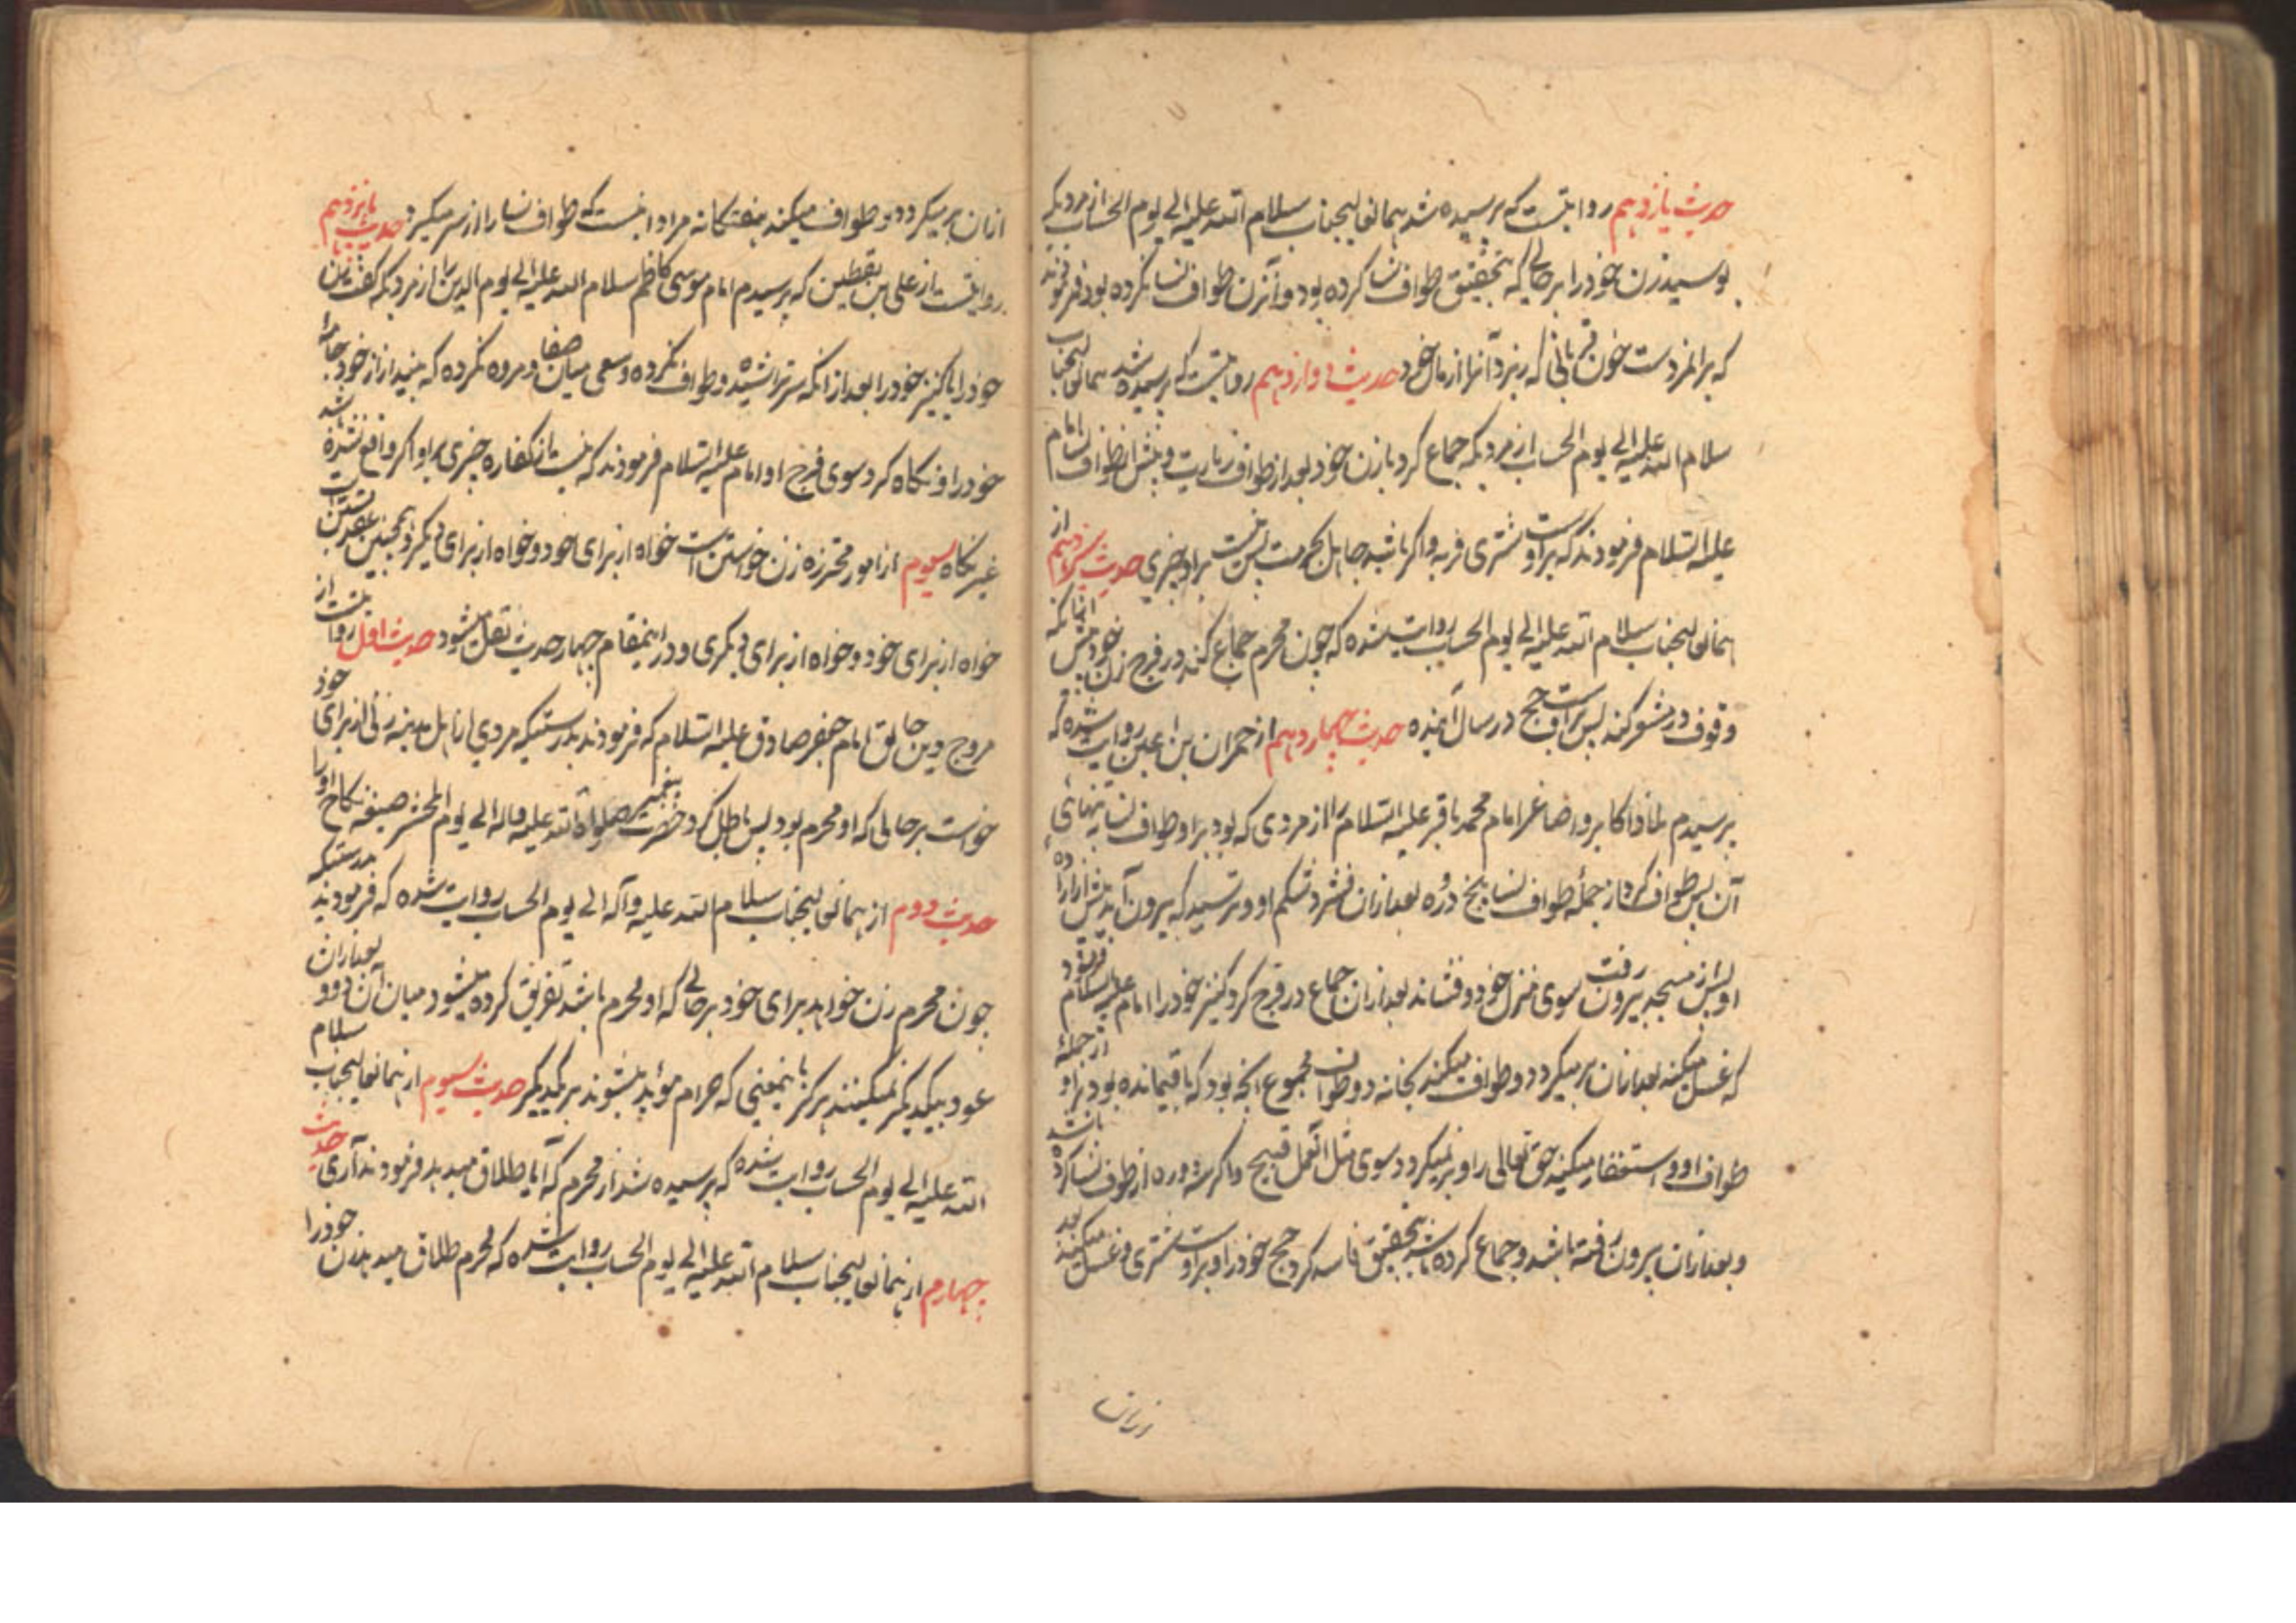 حدیث یازدهم روایتست که پرسیده شد همانعالیجناب سلام الله علیه الی یوم الحساب از مردیکه
بوسید زن خود را بر حالی که بتحقیق طواف نسا کرده بود و آنزن طواف نسا نکرده بود فرمودند
که بر انمرد است خون قربانی که ریزد آنرا از مال خود حدیث دوازدهم روایتست که پرسیده شد همانعالیجناب
سلام الله علیه الی یوم الحساب از مردیکه جماع کرد با زن خود بعد از طواف زیارت و پیش از طواف نسا امام
علیه السلام فرمودند که بر اوست شتری فربه و اگر باشد جاهل بحرمت پس نیست بر او چیزی حدیث سیزدهم از
همانعالیجناب سلام الله علیه الی یوم الحساب روایت شده که چون محرم جماع کند در فرج زن خود پیش از آنکه
وقوف در مشعر کند پس بر اوست حج در سال آینده حدیث چهاردهم از حمران بن اعین روایت شده که
پرسیدم امام محمد باقر علیه السلام را از مردی که بود بر او طواف نسا بتنهائی
آن پس طواف کرد از جمله طواف نسا پنج دوره بعد از آن فشرد شکم او و ترسید که بیرون آید
او پس از مسجد بیرون رفت سوی منزل خود بعد از آن جماع در فرج کرد کنیز خود را امام علیه السلام فرمود
که غسل میکند بعد از آن بر میگردد و طواف میکند بخانه دو طواف مجموع انچه بود که باقیمانده بود بر او از جمله
طواف او و استغفار میکند حق تعالی را و بر نمیگردد سوی مثل آنعمل قبیح و اگر سه دوره از طواف نسا کرده باشد
و بعد از آن بیرون رفته باشد و جماع کرده باشد بتحقیق فاسد کرد حج خود را و بر اوست شتری و غسل میکند بعد
از ان بر میگردد و طواف میکند هفتگانه مراد اینست که طواف نسا را از سر میگیرد حدیث پانزدهم
روایتست از علی بن یقطین که پرسیدم امام موسی کاظم سلام الله علیه الی یوم الدین را از مردیکه گفت بزن
خود را یا کنیز خود را بعد از آنکه سر تراشیده و طواف نکرده و سعی میان صفا و مروه نکرده که بینداز از خود جامه را
خود را و نگاه کرد سوی فرج او امام علیه السلام فرمودند که نیست از کفاره چیزی بر او اگر واقع نشده باشد
غیر نگاه سیوم از امور محترزه زن خواستن است خواه از برای خود و خواه از برای دیگر و همچنین عقد بستن است
خواه از برای خود و خواه از برای دیگری و در اینمقام چهار حدیث نقل میشود حدیث اول روایتست از
مروج دین خالق امام جعفر صادق علیه السلام که فرمودند بدرستیکه مردی از اهل مدینه زنی از برای خود
خواست بر حالی که او محرم بود پس باطل کرد حضرت پیغمبر صلواة الله علیه واله الی یوم المحشر صیغه نکاح او را
حدیث دوم از همانعالیجناب سلام الله علیه و آله الی یوم الحساب روایت شده که فرمودند بدرستیکه
چون محرم زن خواهد برای خود بر حالی که او محرم باشد تفریق کرده میشود میان آن دو و بعد از ان
عود بیکدیگر نمیکنند هرگز باینمعنی که حرام مؤبد میشوند بر یکدیگر حدیث سیوم از همانعالیجناب سلام
الله علیه الی یوم الحساب روایت شده که پرسیده شد از محرم که آیا طلاق میدهد فرمودند آری حدیث
چهارم از همانعالیجناب سلام الله علیه الی یوم الحساب روایت شده که محرم طلاق میدهد زن خود را